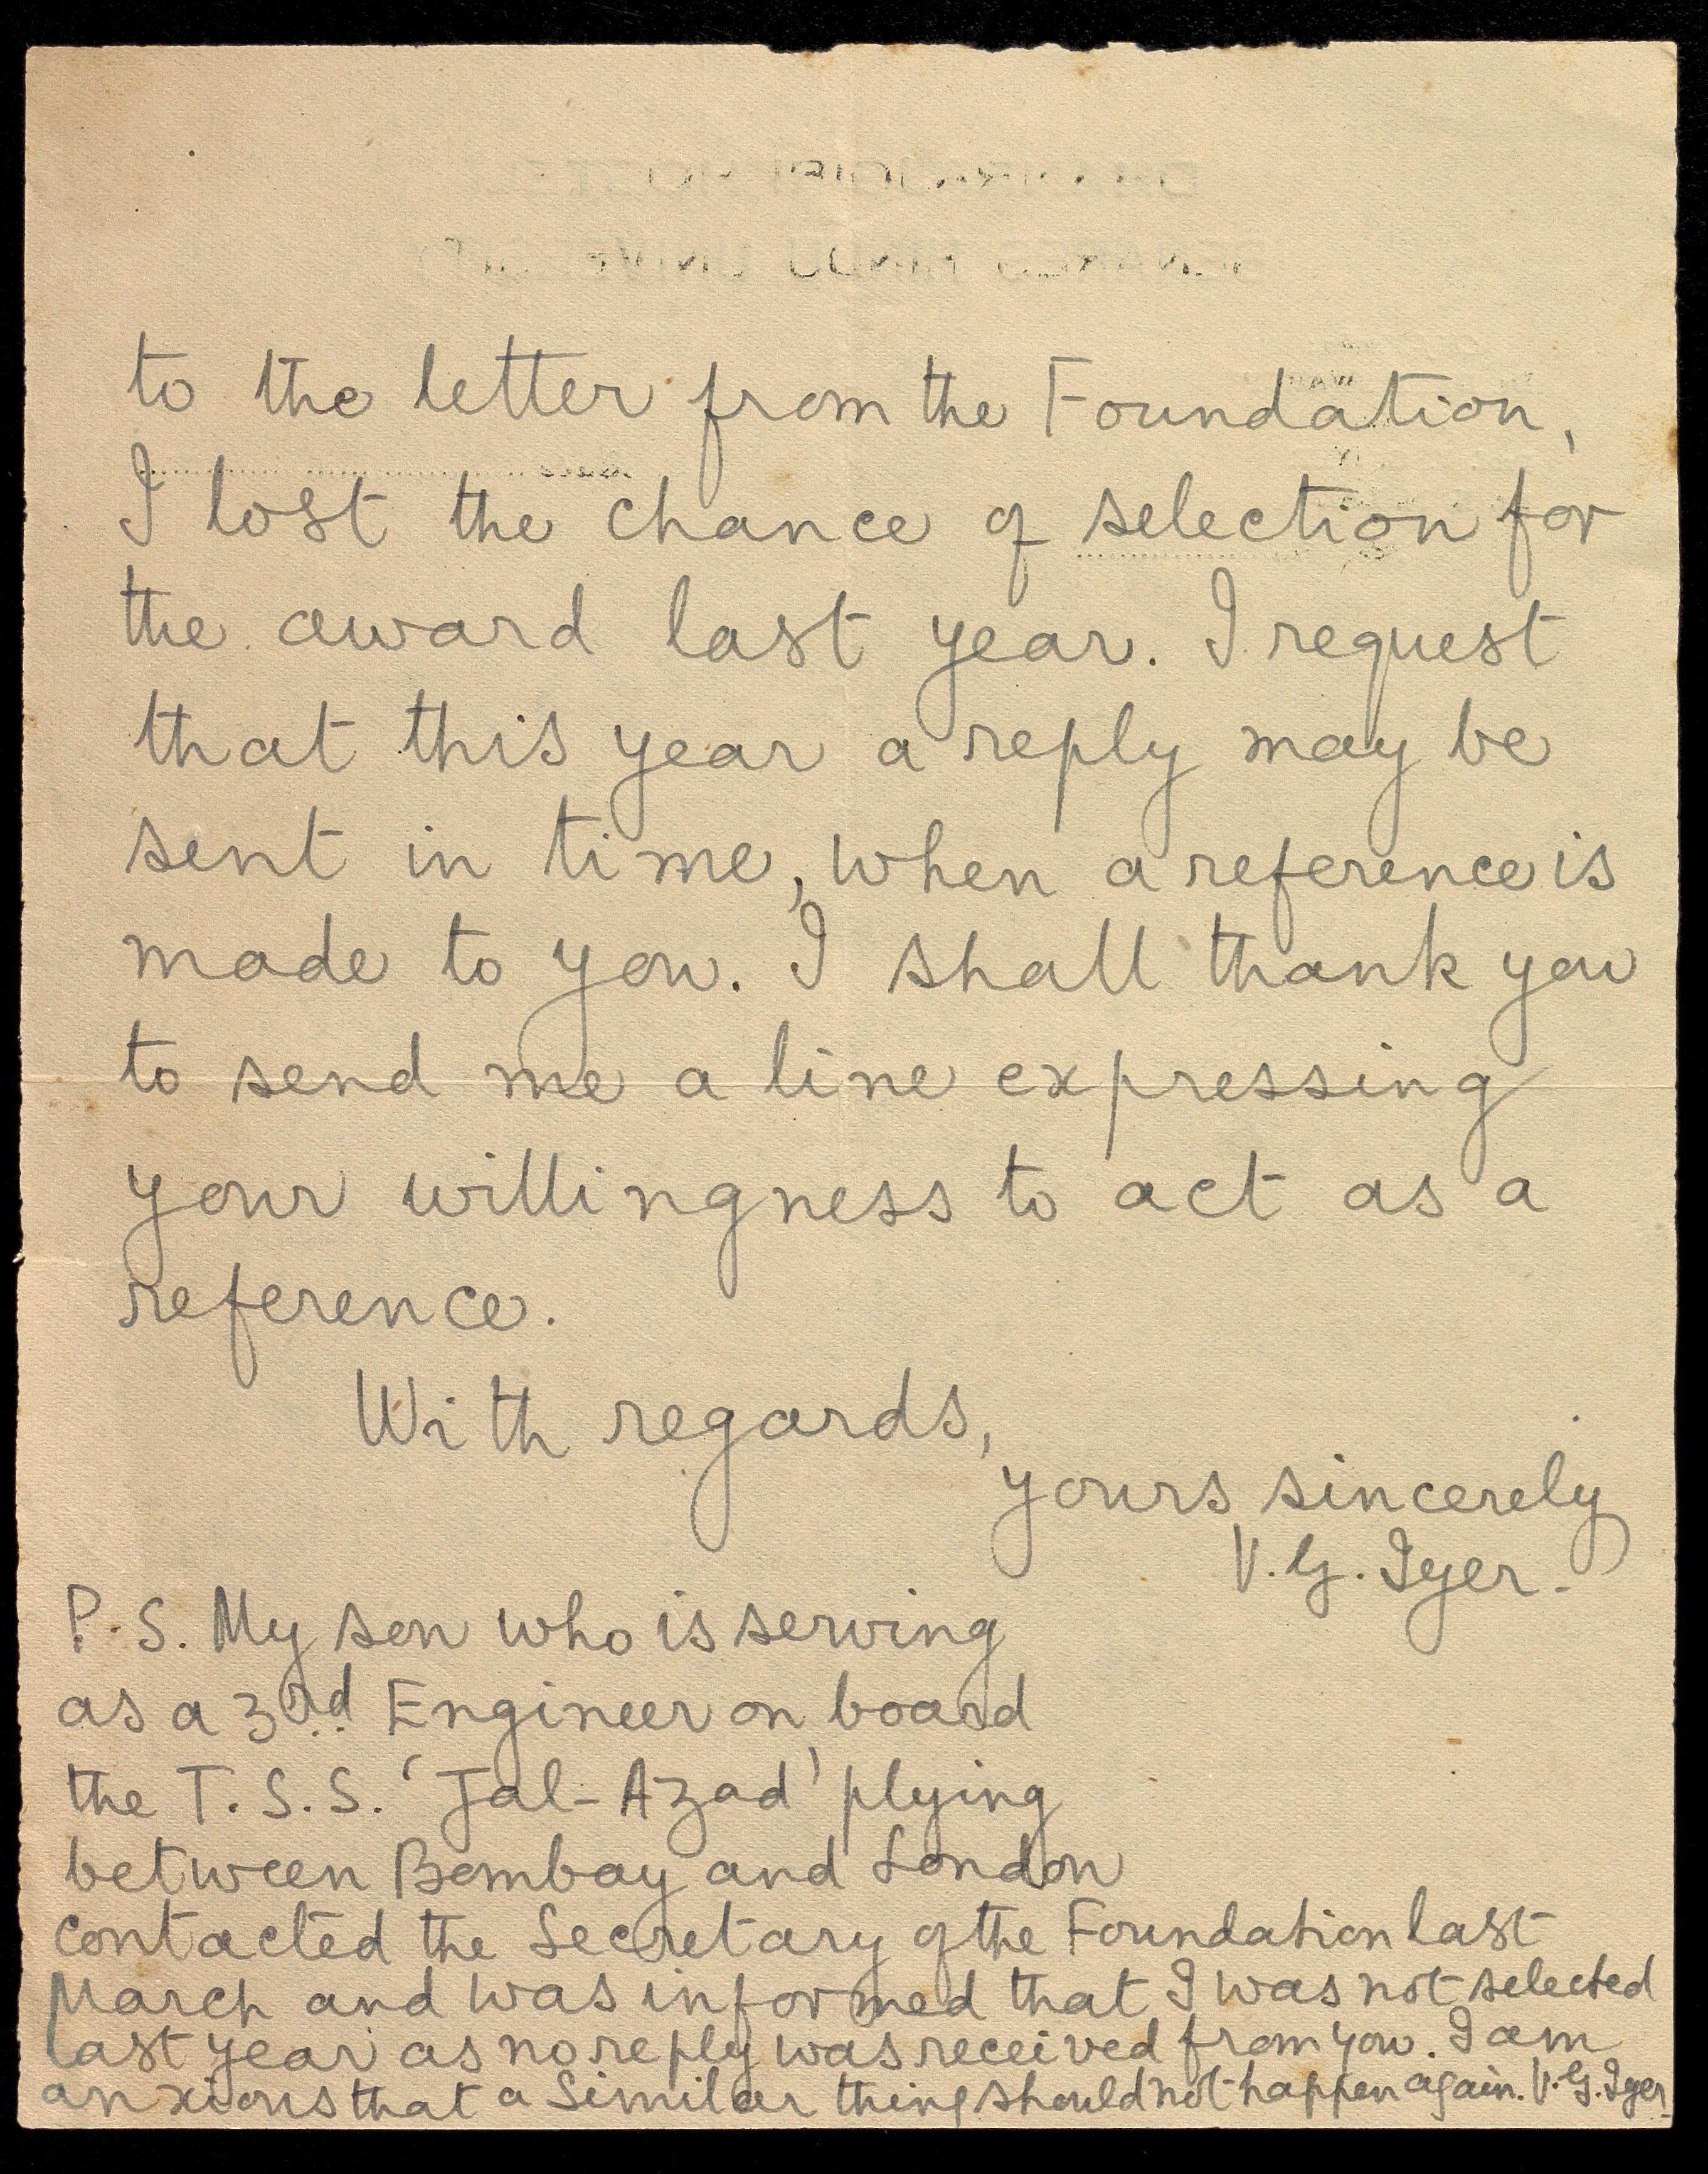 to the letter from the Foundation,
I lost the chance of selection for
the award last year. I request
that this year a reply may be
sent in time, when a reference is
made to you. I shall thank you
to send me a line expressing
your willingness to act as a
reference.
With regards,
yours sincerely
V. G. Iyer.
P. S. My son who is serving
as a 3rd Engineer on board
the T. S. S. 'Jal-Azad' plying
between Bombay and London
contacted the Secretary of the Foundation last
March and was informed that I was not selected
last year as no reply was received from you. I am
anxious that a similar thing should not happen again. V. G. Iyer